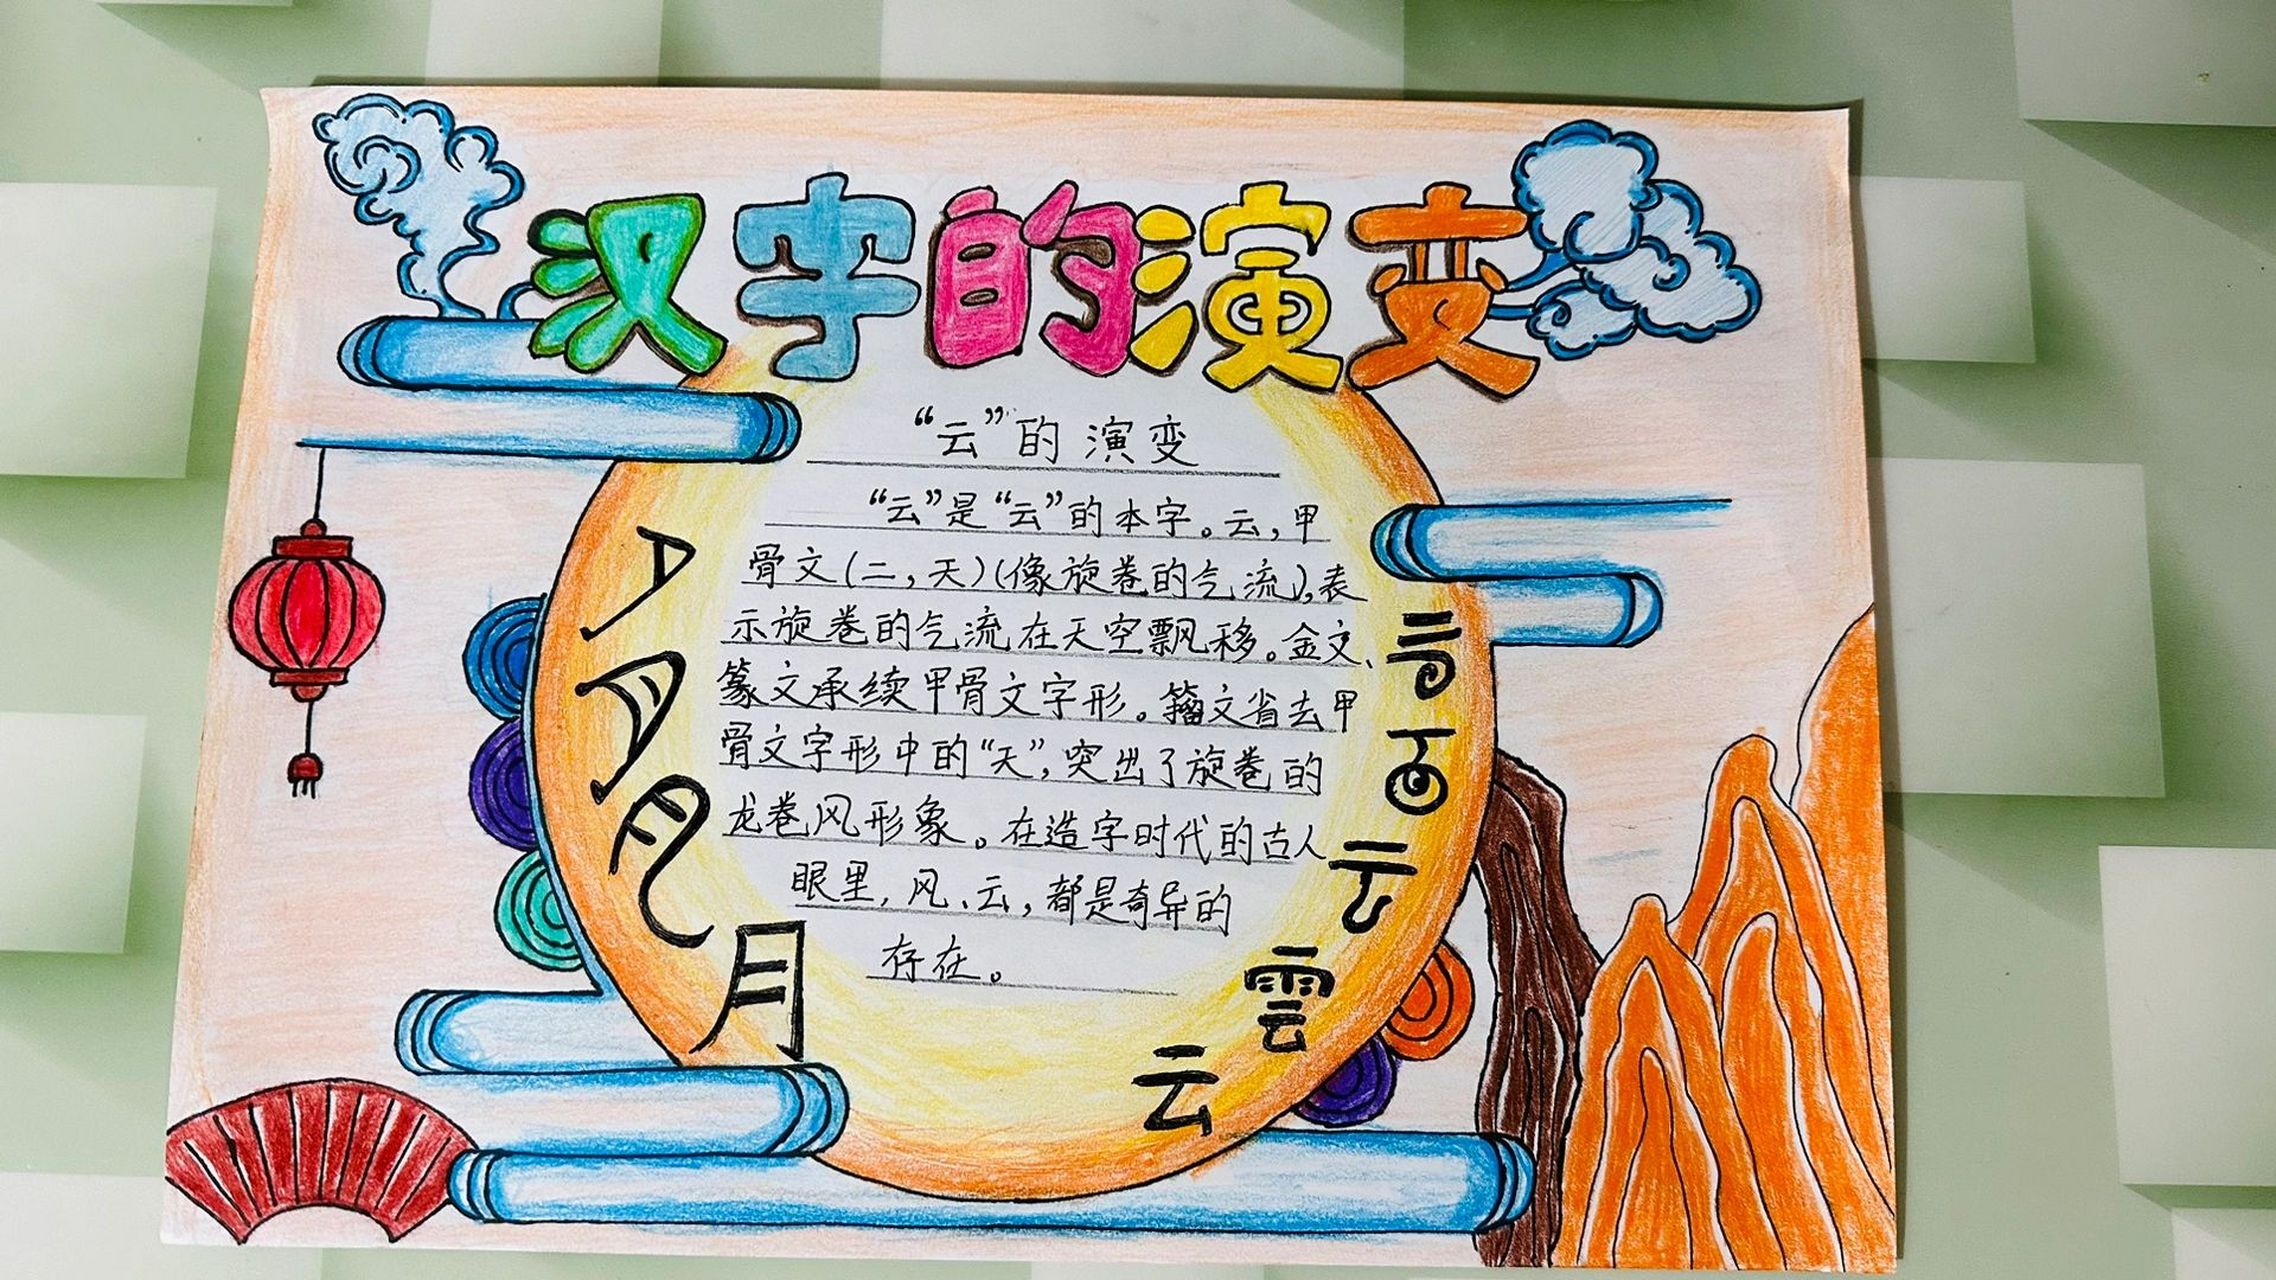 汉字的演变
“云”的演变
“云”是“云”的本字。云,甲
骨文(二,天)(像旋卷的气流),表
示旋卷的气流在天空飘移。金文、
篆文承续甲骨文字形。籀文省去甲
骨文字形中的“天”,突出了旋卷的
龙卷风形象。在造字时代的古人
眼里,风、云,都是奇异的
存在。
月
雲
云